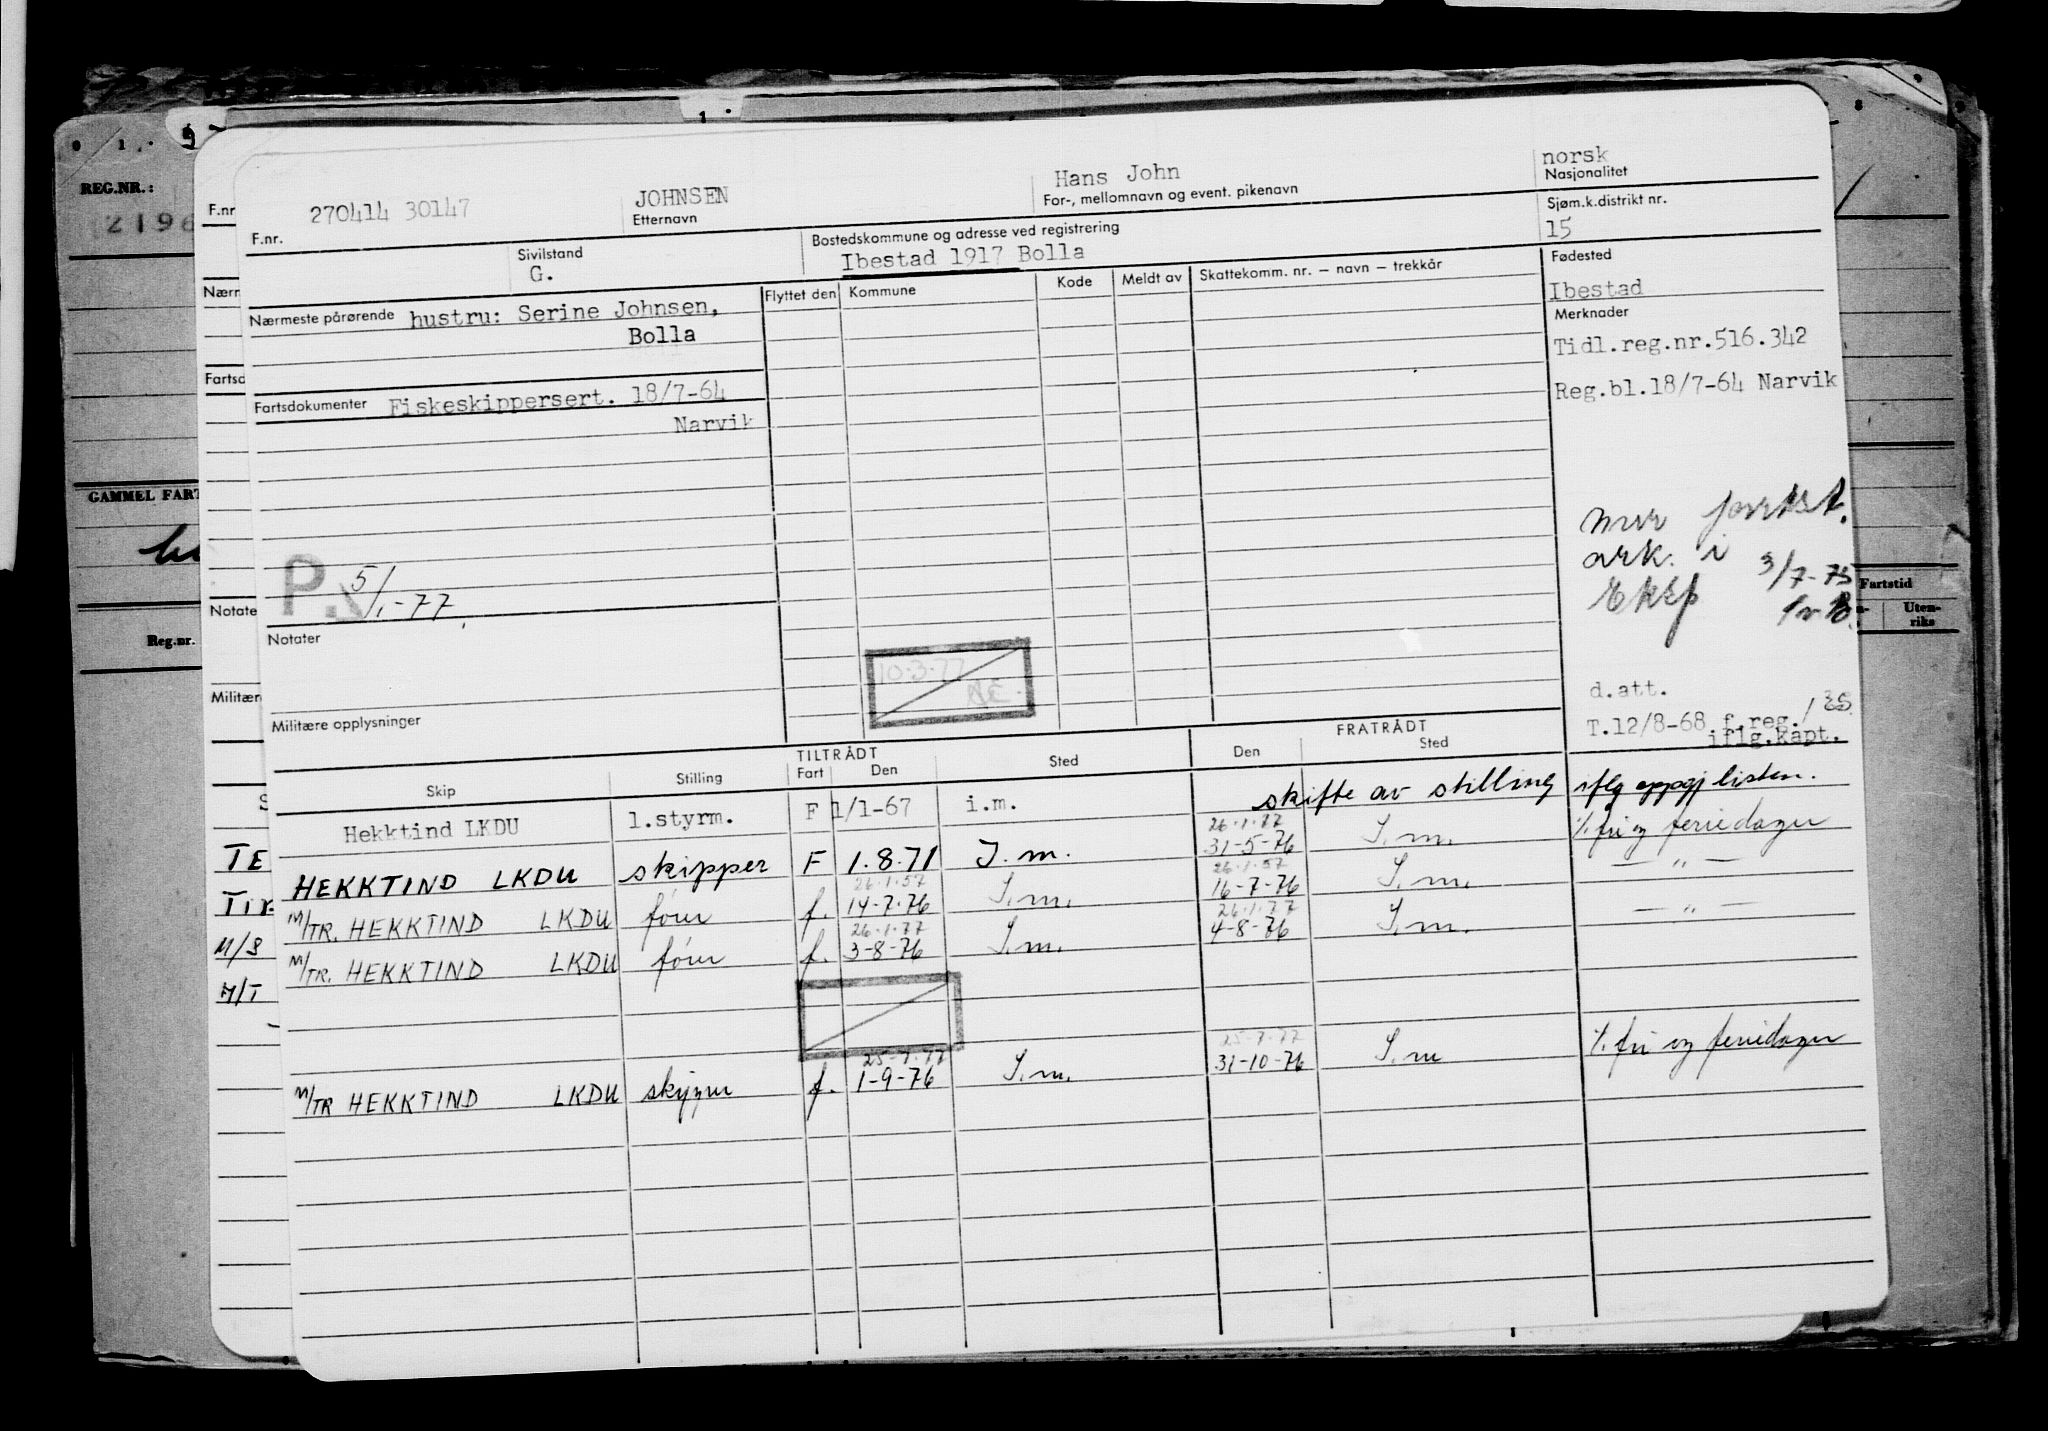 REG.NR.:
F.nr
F.nr. 270414 30147
JOHNSEN
Etternavn
Hans John
For-, mellomnavn og event. pikenavn
norsk
Nasjonalitet
Sivilstand
G.
Bostedskommune og adresse ved registrering
Ibestad 1917 Bolla
Sjøm.k.distrikt nr.
15
Nærmeste pårørende hustru: Serine Johnsen,
Bolla
Flyttet den Kommune Kode Meldt av Skattekomm. nr. – navn – trekkår
Fødested
Ibestad
Merknader
Tidl.reg.nr.516.342
Reg.bl.18/7-64 Narvik
Fartsdokumenter Fiskeskippersert. 18/7-64
Narvik
GAMMEL FART
ark. i 3/7-75
P. 5/1-77
Notater
10.3.77
Militære opplysninger
d.att.
T.12/8-68 f.reg.
iflg.kapt.
Fartstid
Uten-
riks
Reg.nr.
TILTRÅDT FRATRÅDT
Skip Stilling Fart Den Sted Den Sted
Hekktind LKDU 1.styrm. F 1/1-67 i.m. skifte av stilling iflg oppgj listen.
26.1.77
HEKKTIND LKDU skipper F 1.8.71 I.m. 31-5-76 I.m. %. fri og feriedager
26.1.57 26.1.57
M/TR. HEKKTIND LKDU fører f. 14-7-76 I.m. 16-7-76 I.m. — " —
26.1.77 26.1.77
M/TR. HEKKTIND LKDU fører f. 3-8-76 I.m. 4-8-76 I.m. — " —
25-7-77 25-7-77
M/TR HEKKTIND LKDU skipper f. 1-9-76 I.m. 31-10-76 I.m %. fri og feriedager